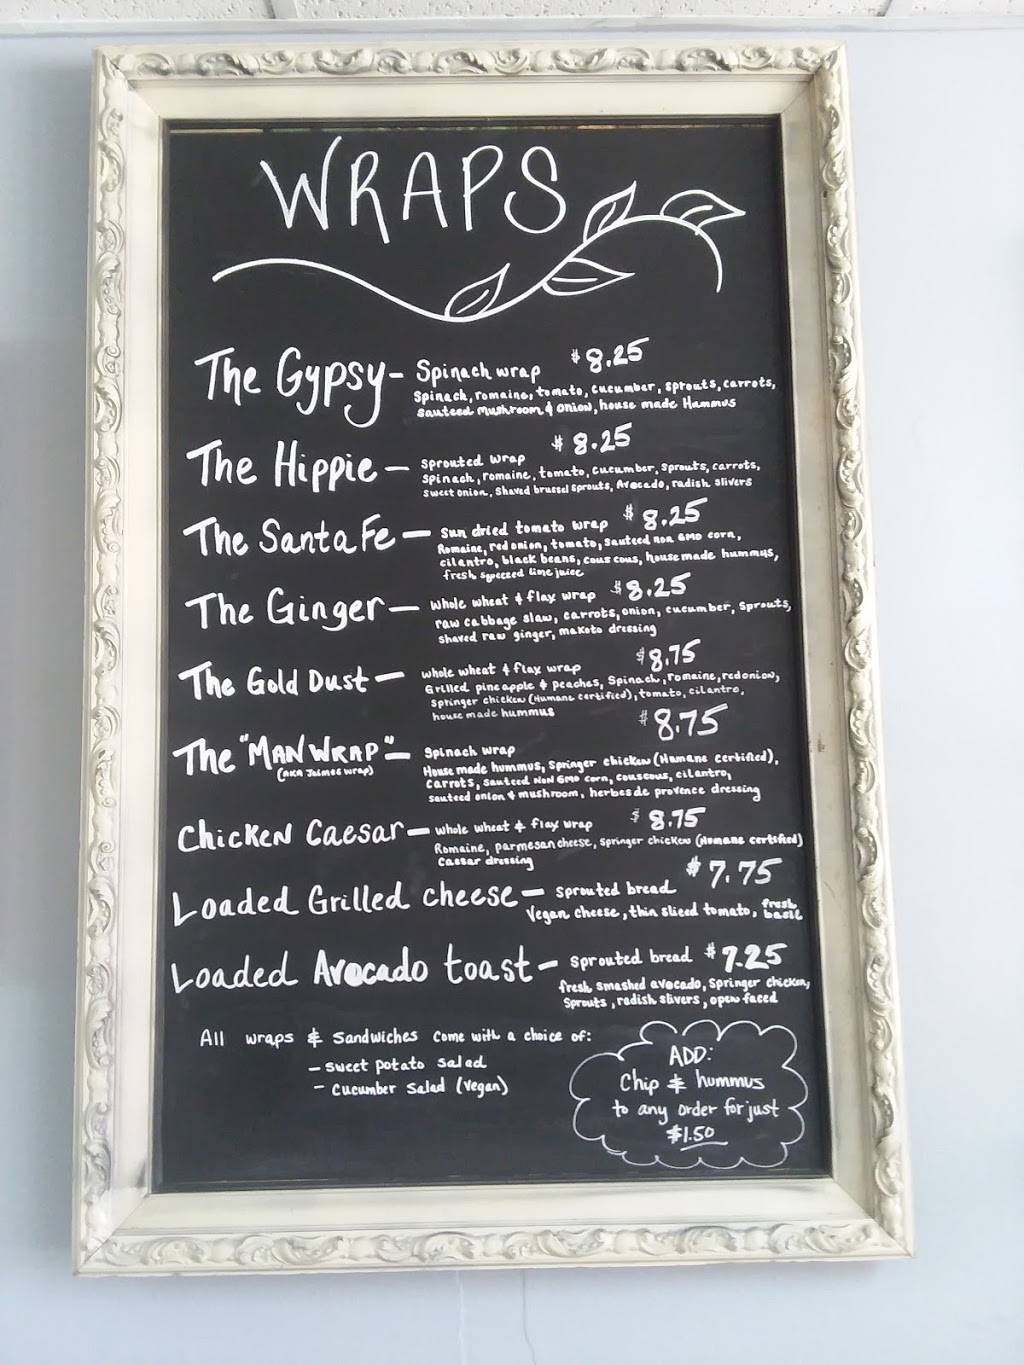 WRAPS
The Gypsy - Spinach wrap $8.25
Spinach, romaine, tomato, cucumber, sprouts, carrots,
sauteed mushroom & onion, house made Hummus
The Hippie - sprouted wrap $8.25
spinach, romaine, tomato, cucumber, sprouts, carrots,
sweet onion, shaved brussel sprouts, Avocado, radish slivers
The Santa Fe - sun dried tomato wrap $8.25
Romaine, red onion, tomato, sauteed non GMO corn,
cilantro, black beans, cous cous, house made hummus,
fresh squeezed lime juice
The Ginger - whole wheat & flax wrap $8.25
raw cabbage slaw, carrots, onion, cucumber, sprouts,
shaved raw ginger, makoto dressing
The Gold Dust - whole wheat & flax wrap $8.75
Grilled pineapple & peaches, Spinach, romaine, red onion,
springer chicken (Humane certified), tomato, cilantro,
house made hummus
The "MAN WRAP" - Spinach wrap $8.75
(AKA Jaimes wrap)
House made hummus, Springer chicken (Humane certified),
carrots, sauteed NON GMO corn, couscous, cilantro,
sauteed onion & mushroom, herbes de provence dressing
Chicken Caesar - whole wheat & flax wrap $8.75
Romaine, parmesan cheese, springer chicken (Humane certified)
Caesar dressing
Loaded Grilled cheese - sprouted bread $7.75
Vegan cheese, thin sliced tomato, fresh basil
Loaded Avocado toast - sprouted bread $7.25
fresh smashed avocado, Springer chicken,
Sprouts, radish slivers, open faced
All wraps & sandwiches come with a choice of:
- sweet potato salad
- cucumber salad (vegan)
ADD:
Chip & hummus
to any order for just
$1.50